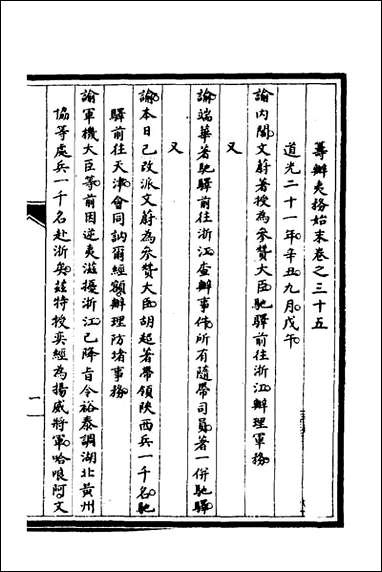 籌辦夷務始末卷之三十五
道光二十一年辛丑九月戊午
諭內閣文蔚著授為參贊大臣馳驛前往浙江辦理軍務
又
諭端華著馳驛前往浙江查辦事件所有隨帶司員著一併馳驛
又
諭本日已改派文蔚為參贊大臣胡超著帶領陝西兵一千名馳
驛前往天津會同訥爾經額辦理防堵事務
諭軍機大臣等前因逆夷滋擾浙江已降旨令裕泰調湖北黃州
協等處兵一千名赴浙矣茲特授奕經為揚威將軍哈哴阿文